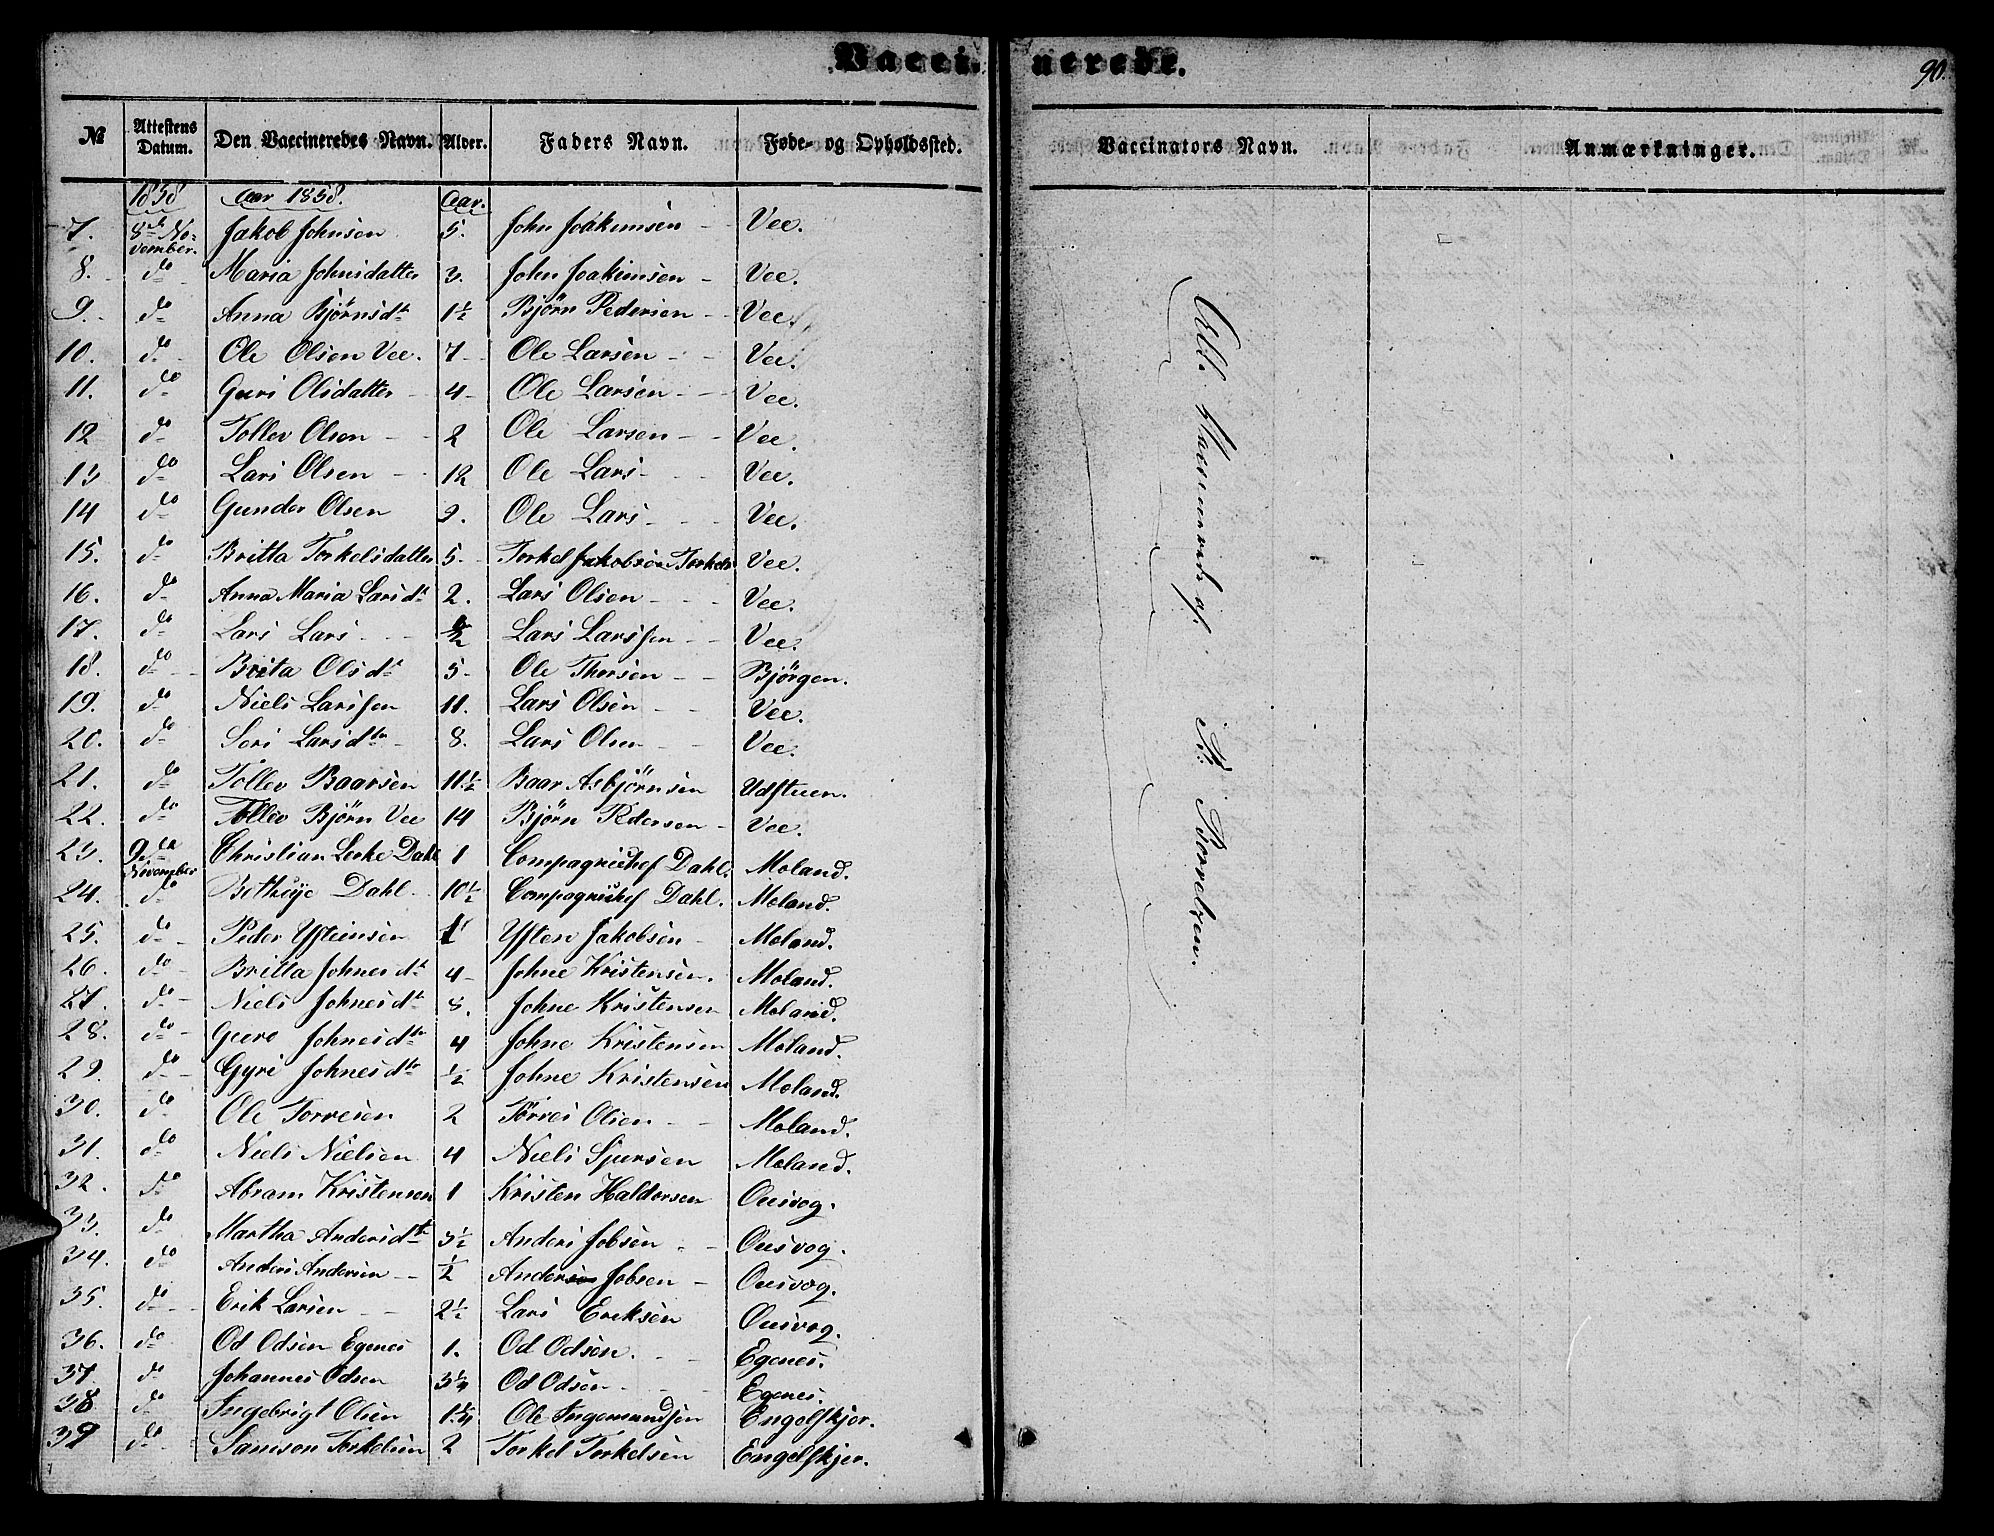 Vacci- nerede.
90.
№ Attestens Datum. Den Vaccineredes Navn. Alder. Faders Navn. Føde- og Opholdssted. Vaccinators Navn. Anmærkninger.
1858 Aar 1858. Aar.
7. 8de November. Jakob Johnsen 5. John Joakimsen Vee.
8. do Maria Johnsdatter 3. John Joakimsen Vee.
9. do Anna Bjørnsdt 1½ Bjørn Pedersen Vee.
10. do Ole Olsen Vee. 7 Ole Larsen Vee.
11. do Guri Olsdatter 4 Ole Larsen Vee.
12 do Tollev Olsen 2 Ole Larsen Vee.
13 do Lars Olsen 12 Ole Lars Vee.
14 do Gunder Olsen 9. Ole Lars Vee.
15. do Britta Torkelsdatter 5. Torkel Jakobsen Torkels Vee.
16. do Anna Maria Larsdt 2. Lars Olsen Vee.
17. do Lars Lars ½ Lars Larssen Vee.
18. do Brita Olsdt 5. Ole Thorsen Bjørgen.
19. do Niels Larssen 11. Lars Olsen Vee.
20. do Seri Larsdtr 8. Lars Olsen Vee.
21. do Tollev Baarsen 11½ Baar Asbjørnsen Udstuen.
22. do Tollev Bjørn Vee 14 Bjørn Pedersen Vee.
23. 9de November Christian Lerke Dahl 1 Compagnichef Dahl. Moland.
24. do Bothilje Dahl 10½ Compagnichef Dahl. Moland.
25. do Peder Ysteinsen 1 Ysten Jakobsen Moland.
26. do Britta Johnesdt 4 Johne Kristensen. Moland.
27. do Niels Johnesdt 8. Johne Kristensen Moland.
28. do Guro Johnesdtr 4 Johne Kristensen Moland.
29. do Gyri Johnesdtr ½ Johne Kristensen Moland.
30. do Ole Torresen 2 Tørres Olsen Moland.
31. do Niels Nielsen 4 Niels Sjursen Moland.
32. do Abram Kristensen 1 Kristen Haldorsen Ousvog.
33. do Martha Andersdt 3½ Anders Jobsen Ousvog.
34. do Anders Andersen ½ Andersen Jobsen Ousvog.
35. do Erik Larsen 2½ Lars Eriksen Ousvog.
36. do Od Odsen Egenes 1. Od Odsen. Egenes.
37. do Johannes Odsen 3¼ Od Odsen Egenes.
38 do Ingebrigt Olsen 1¼ Ole Ingemundsen Engelskjør.
39 do Samson Torkelsen 2 Torkel Torkelsen Engelskjer.
Alle Vaccinerede af